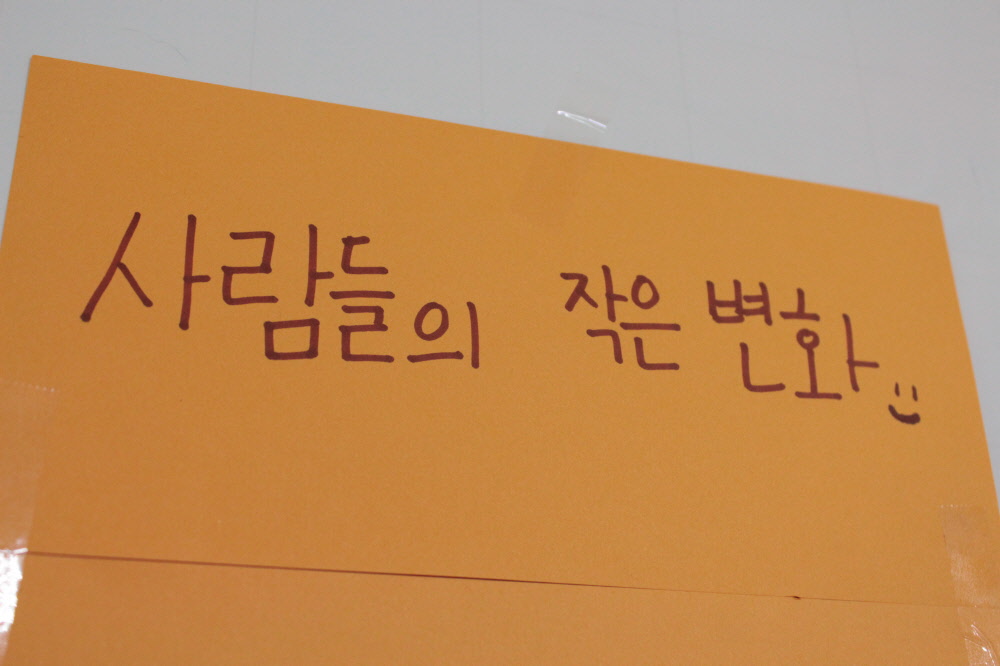 사람들의 작은 변화 :)